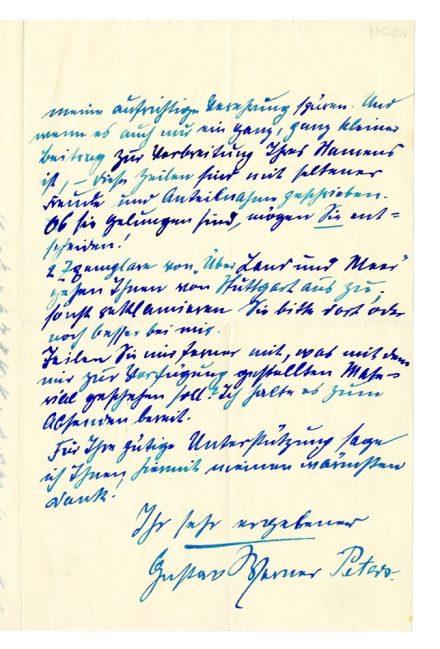 meine aufrichtige Verehrung spüren. Und
wenn es auch nur ein ganz, ganz kleiner
Beitrag zur Verbreitung Ihres Namens
ist, – diese Zeilen sind mit seltener
Freude und Anteilnahme geschrieben.
Ob sie gelungen sind, mögen Sie ent=
scheiden!
2 Exemplare von „Über Land und Meer"
gehen Ihnen von Stuttgart aus zu,
sonst reklamieren Sie bitte dort oder
noch besser bei mir.
Teilen Sie mir ferner mit, was mit dem
mir zur Verfügung gestellten Mate=
rial geschehen soll? Ich halte es zum
Absenden bereit.
Für Ihre gütige Unterstützung sage
ich Ihnen hiermit meinen wärmsten
Dank!
Ihr sehr ergebener
Gustav Werner Peters.